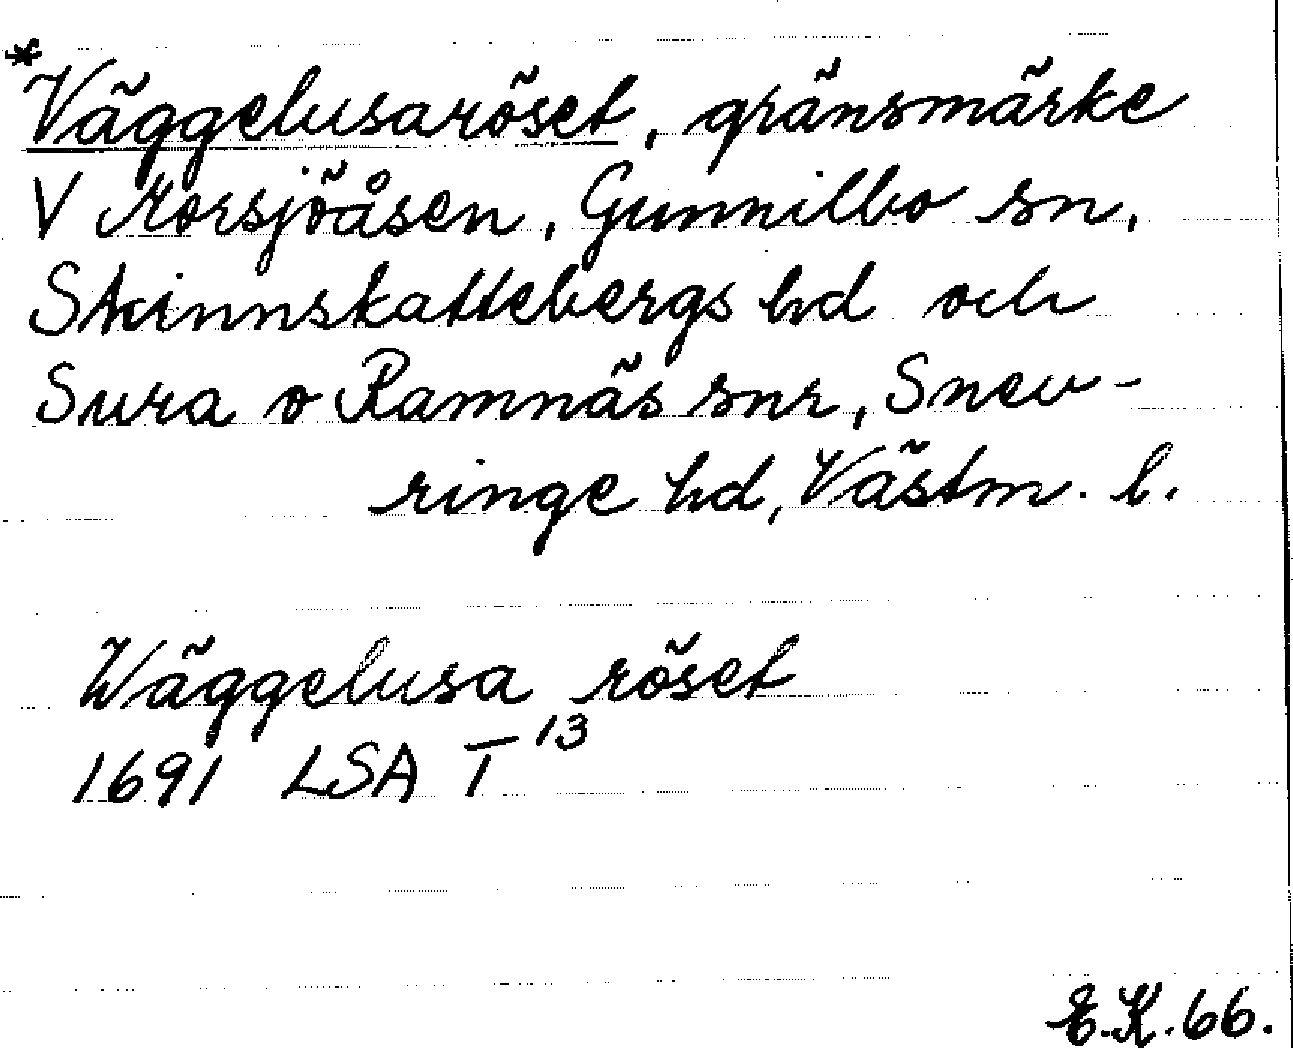 *Väggelusaröset, gränsmärke
V Morsjöåsen, Gunnilbo sn,
Skinnskattebergs hd och
Sura o Ramnäs snr, Snev-
ringe hd, Västm. l.
Wäggelusa röset
1691 LSA T 13
E.K. 66.